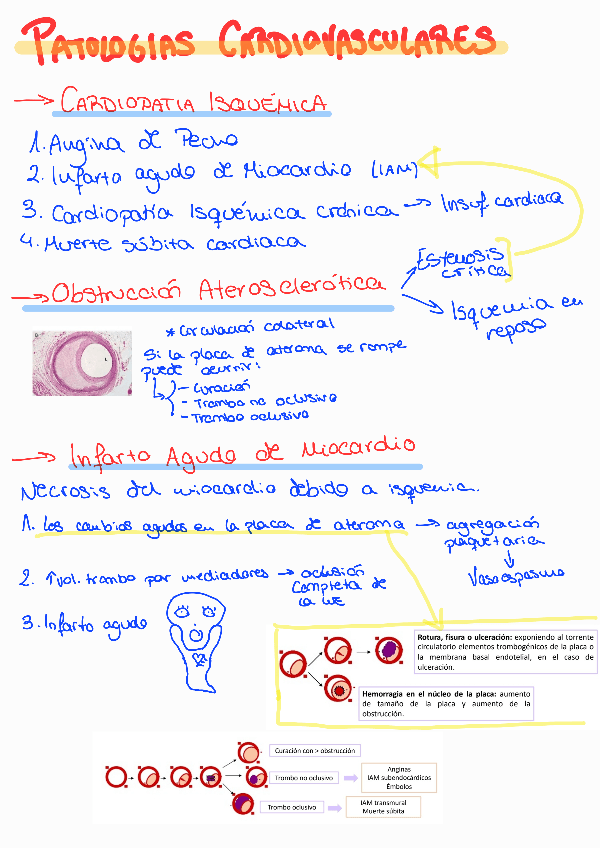 PATOLOGIAS CARDIOVASCULARES
→ CARDIOPATIA ISQUÉMICA
1. Angina de Pecho
2. Infarto agudo de Miocardio (IAM)
3. Cardiopatía Isquémica crónica → Insuf cardiaca
4. Muerte súbita cardiaca
→ Obstrucción Aterosclerótica
Estenosis
crítica
Isquemia en
reposo
* Circulación colateral
Si la placa de ateroma se rompe
puede ocurrir:
- Curación
- Trombo no oclusivo
- Trombo oclusivo
→ Infarto Agudo de Miocardio
Necrosis del miocardio debido a isquemia.
1. Los cambios agudos en la placa de ateroma → agregación
plaquetaria
↓
Vasoespasmo
2. ↑vol. trombo por mediadores → oclusión
completa de
la
3. Infarto agudo
Rotura, fisura o ulceración: exponiendo al torrente
circulatorio elementos trombogénicos de la placa o
la membrana basal endotelial, en el caso de
ulceración.
Hemorragia en el núcleo de la placa: aumento
de tamaño de la placa y aumento de la
obstrucción.
Curación con > obstrucción
Trombo no oclusivo
Anginas
IAM subendocárdicos
Émbolos
Trombo oclusivo
IAM transmural
Muerte súbita